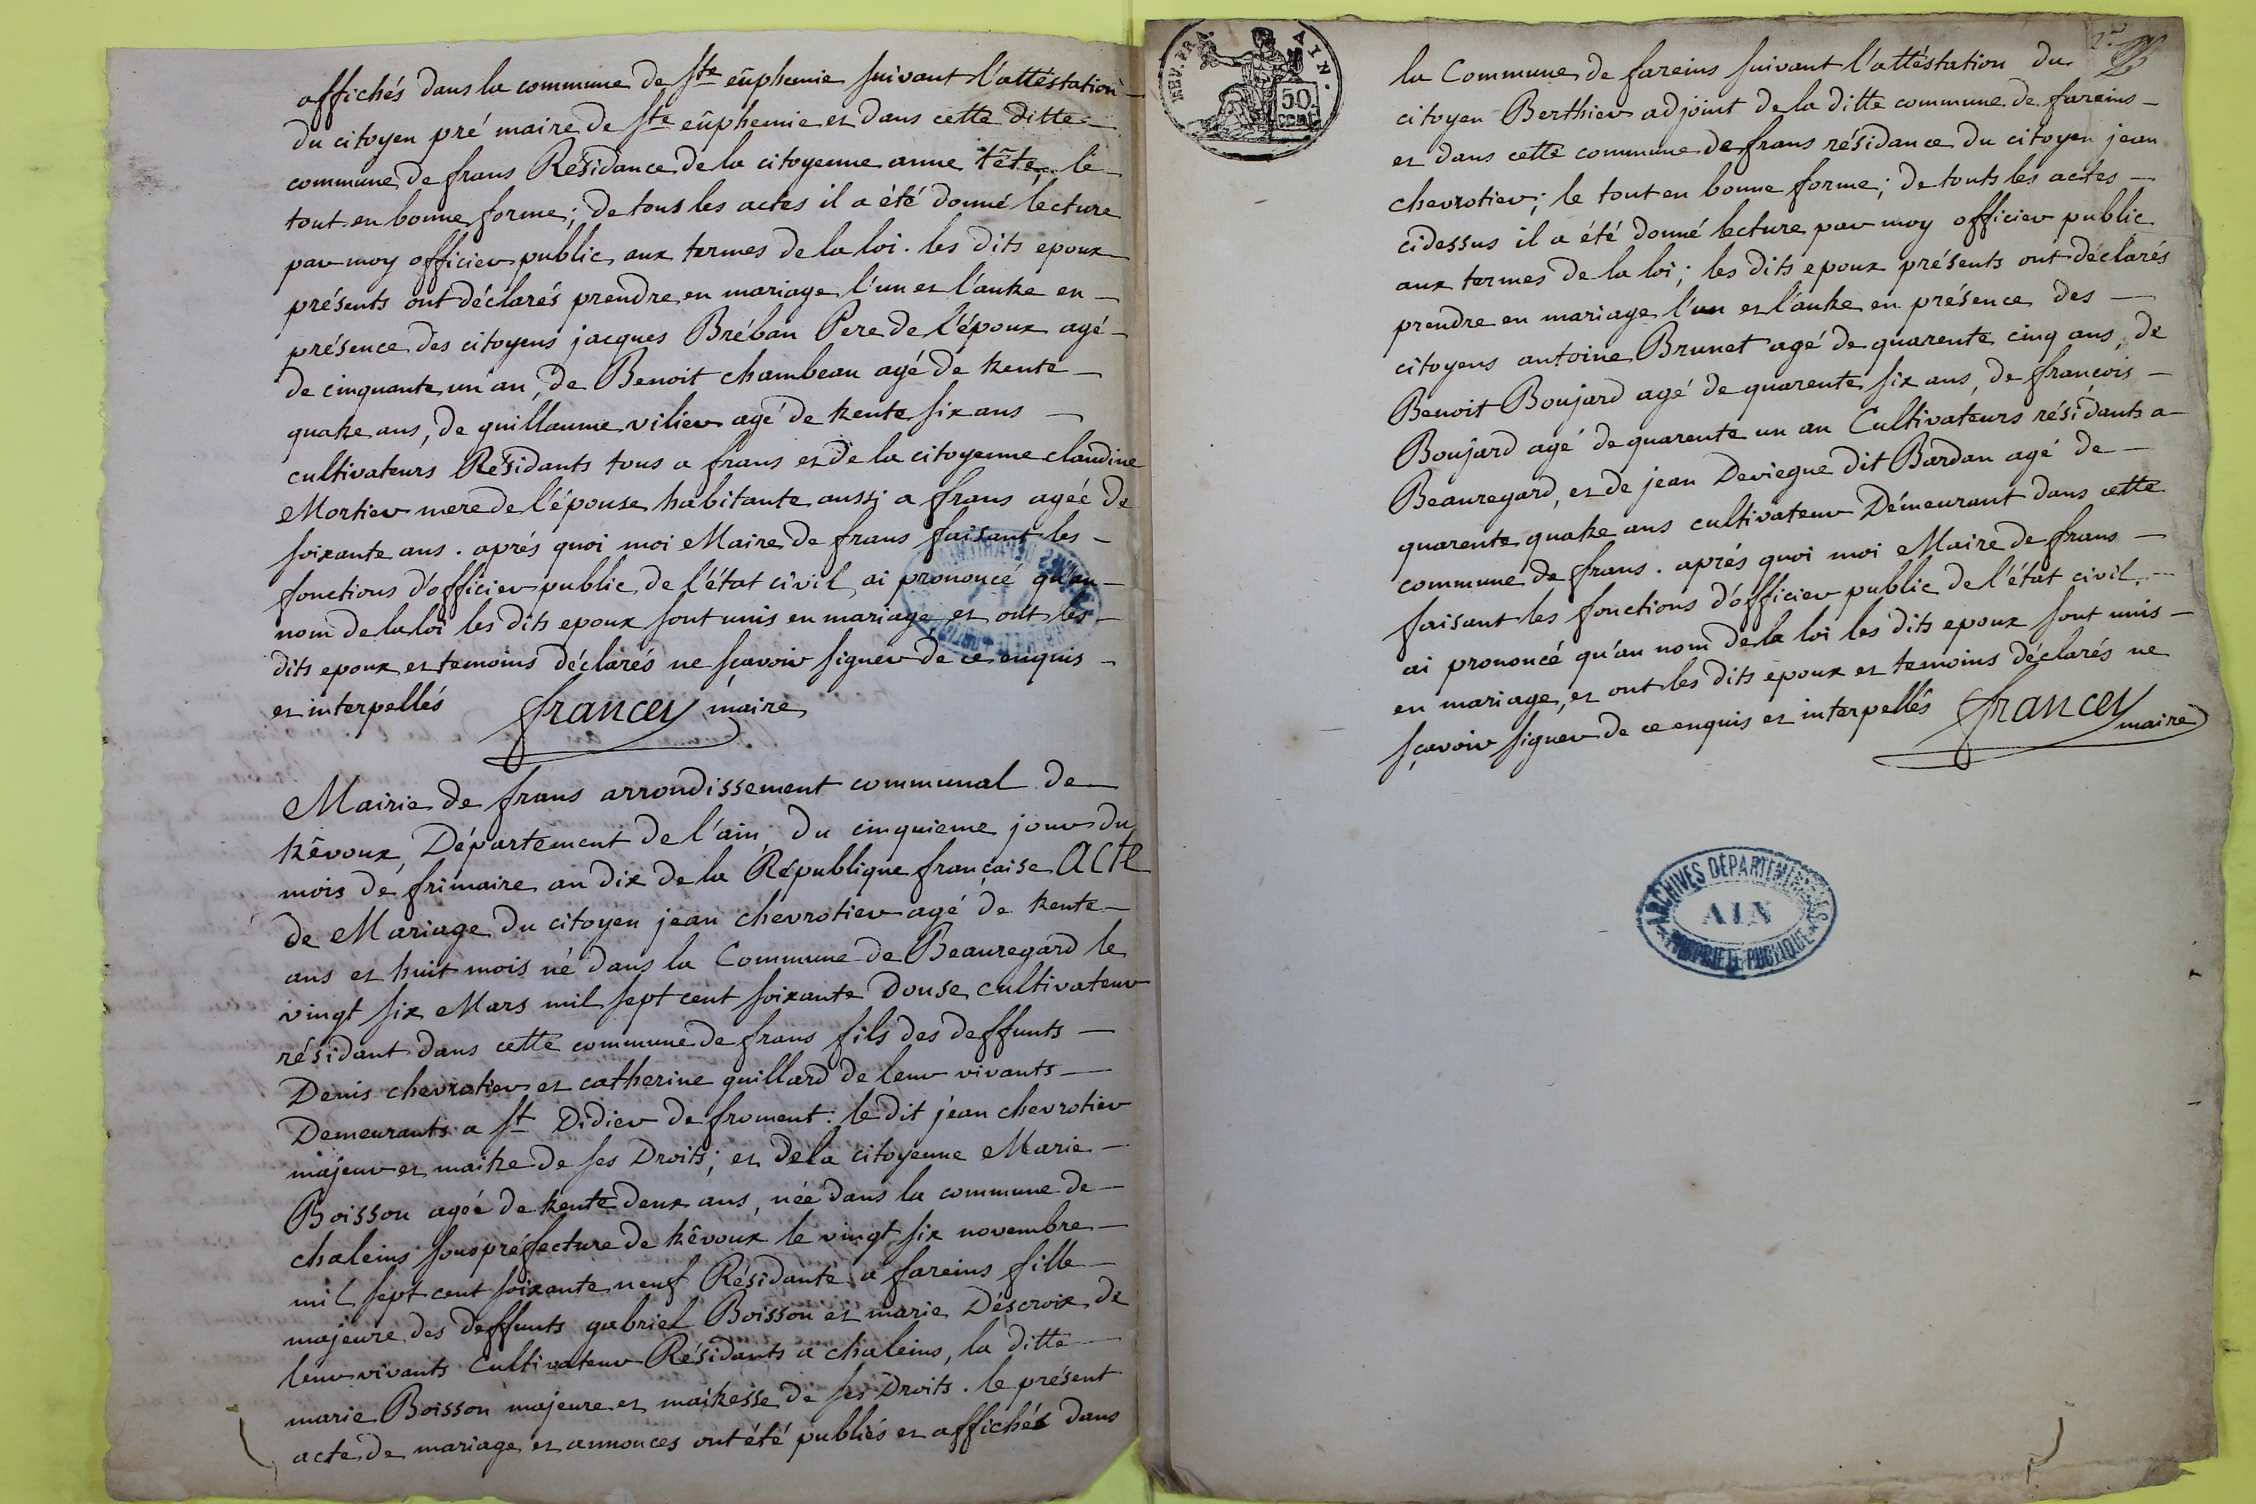 affichés dans la commune de Ste eûphemie suivant l'attéstation
du citoyen pré maire de Ste eûphemie et dans cette ditte
commune de frans Résidance de la citoyenne anne têtê, le
tout en bonne forme; de tous les actes il a été donné lecture
par moy officier public aux termes de la loi. les dits epoux
présents ont déclarés prendre en mariage l'un et l'autre en
présence des citoyens jacques Bréban Pere de l'époux agé
de cinquante un an, de Benoit chambeau agé de trente
quatre ans, de guillaume vilier agé de trente six ans
cultivateurs Résidants tous a frans et de la citoyenne claudine
Mortier mere de l'épouse habitante aussi a frans agée de
soixante ans. aprés quoi moi Maire de frans faisant les
fonctions d'officier public de l'état civil ai prononcé qu'au
nom de la loi les dits epoux sont unis en mariage et ont les
dits epoux et temoins déclarés ne sçavoir signer de ce enquis
et interpellés francey maire
Mairie de frans arrondissement communal de
trêvoux Département de l'ain, du cinquieme jour du
mois de frimaire an dix de la République française Acte
de Mariage du citoyen jean chevrotier agé de trente
ans et huit mois né dans la Commune de Beauregard le
vingt six Mars mil sept cent soixante Douse cultivateur
résidant dans cette commune de frans fils des deffunts
Denis chevrotier et catherine guillard de leur vivants
Demeurants a St Didier de froment: le dit jean chevrotier
majeur et maitre de ses Droits; et dela citoyenne Marie
Boisson agée de trente deux ans, née dans la commune de
chaleins sous préfecture de trêvoux le vingt six novembre
mil sept cent soixante neuf Résidante a fareins fille
majeure des deffunts gabriel Boisson et marie Déscroix de
leur vivants Cultivateur Résidants a chaleins, la ditte
marie Boisson majeure et maitresse de ses Droits. le présent
acte de mariage et annonces ont été publiés et affichés dans
REP. FRA. AIN.
50
CENT
la Commune de fareins suivant l'attéstation du
citoyen Berthier adjoint de la ditte commune de fareins
et dans cette commune de frans résidance du citoyen jean
chevrotier; le tout en bonne forme; de touts les actes
cidessus il a été donné lecture par moy officier public
aux termes de la loi; les dits epoux présents ont déclarés
prendre en mariage l'un et l'autre en présence des
citoyens antoine Brunet agé de quarente cinq ans, de
Benoit Boujard agé de quarente six ans, de françois
Boujard agé de quarente un an Cultivateurs résidants a
Beauregard, et de jean Deviegue dit Bardan agé de
quarente quatre ans cultivateur Démeurant dans cette
commune de frans. aprés quoi moi Maire de frans
faisant les fonctions d'officier public de l'état civil,
ai prononcé qu'au nom de la loi les dits epoux sont unis
en mariage, et ont les dits epoux et temoins déclarés ne
sçavoir signer de ce enquis et interpellés francey
maire
ARCHIVES DÉPARTEMENTALES
AIN
PROPRIÉTÉ PUBLIQUE